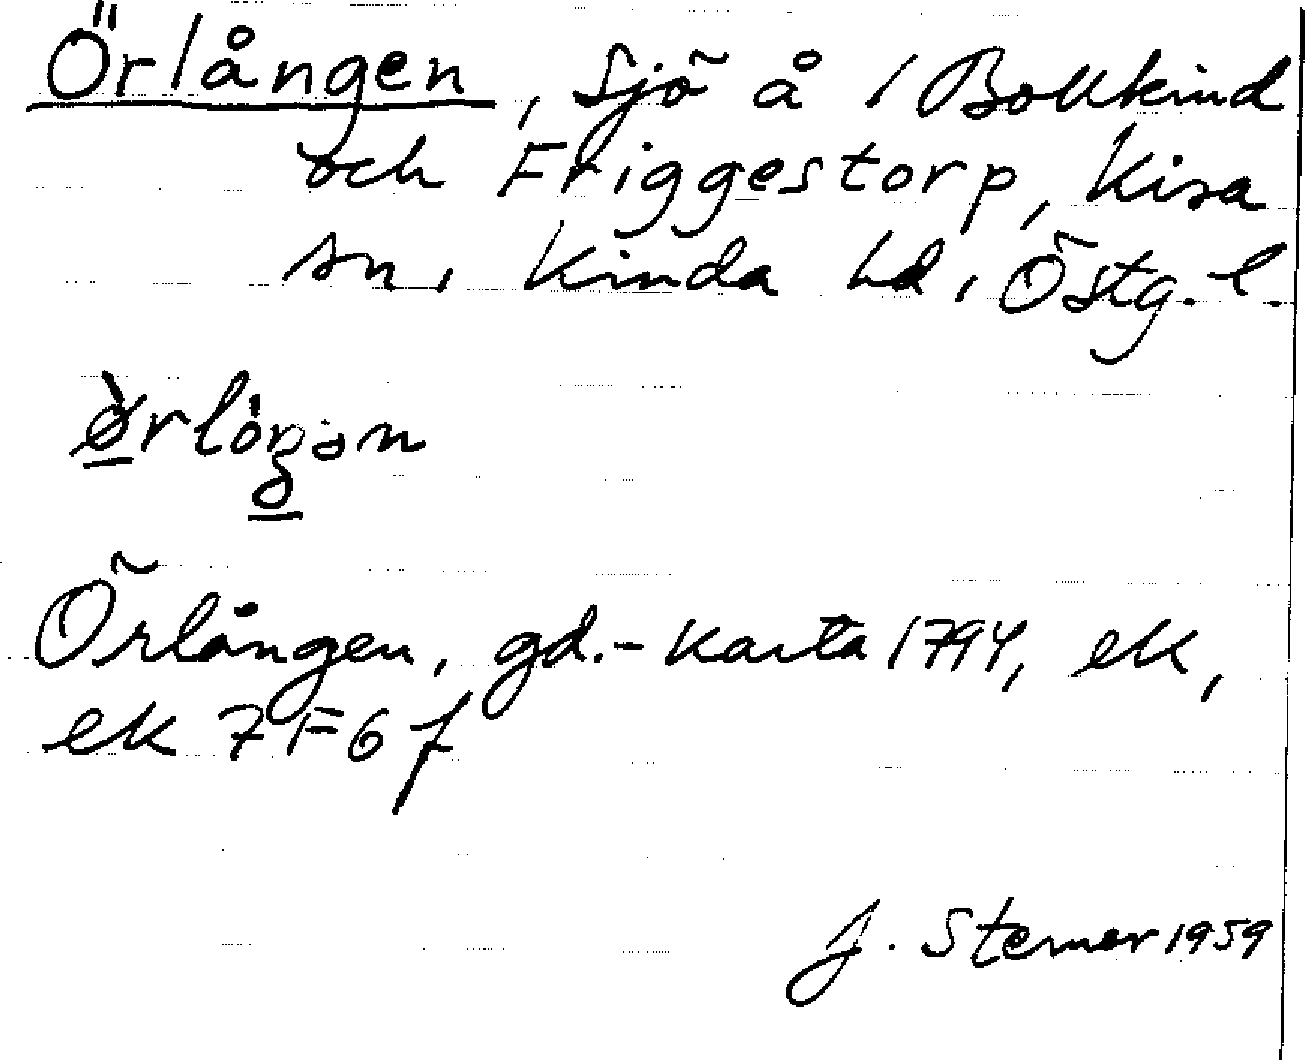 Örlången, Sjö å 1 Bollkind
och Friggestorp, Kisa
sn, Kinda hd, Östg. l.
Örlången, gd.-karta 1794, ek,
ek 7F6f
J. Sterner 1959